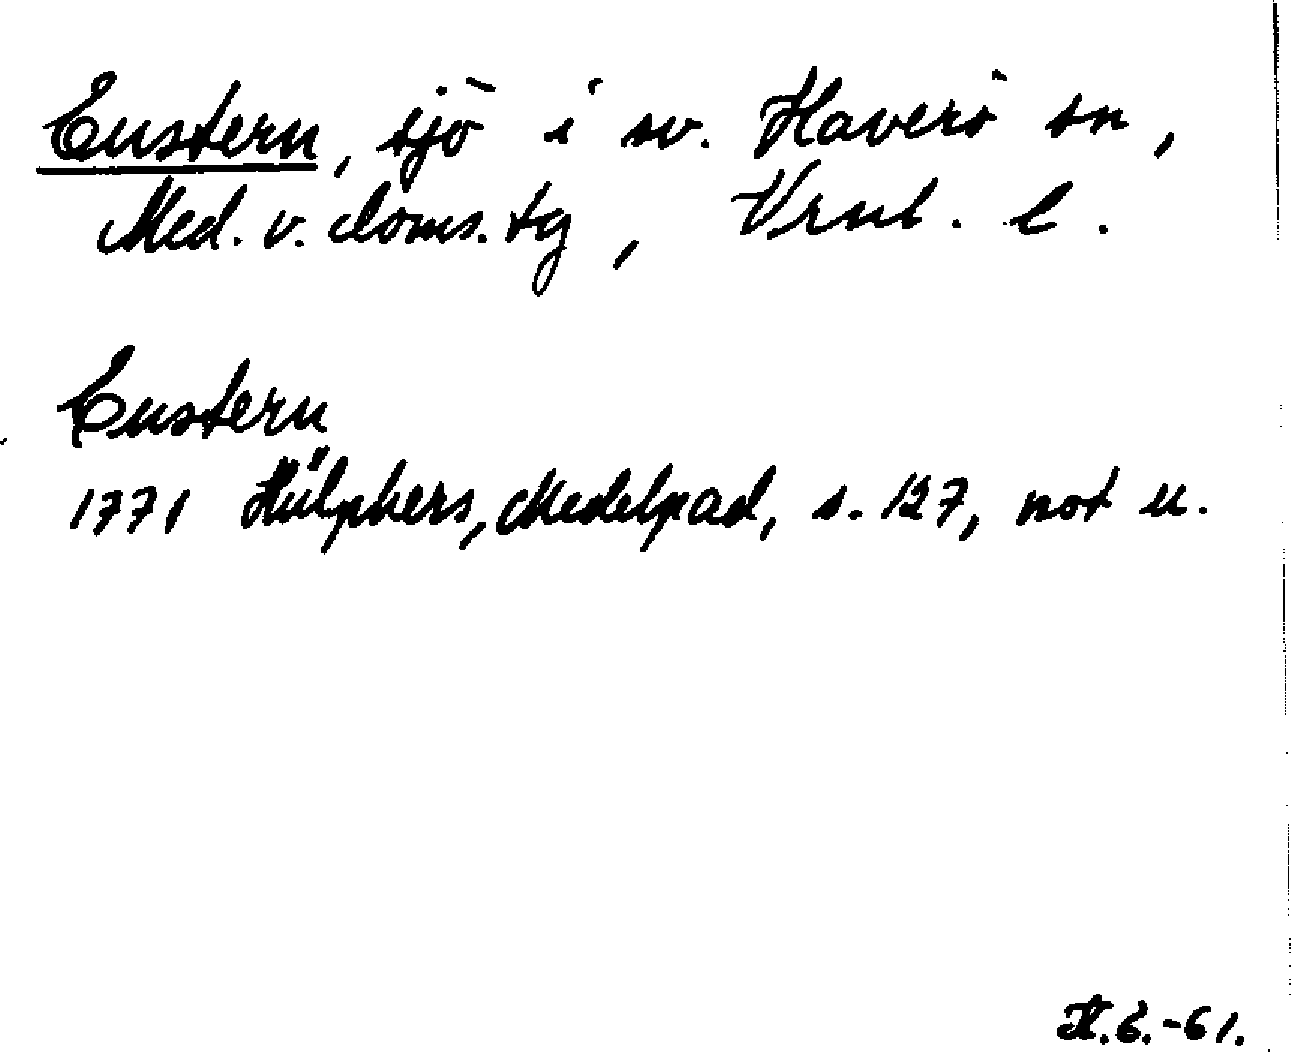 Eustern, sjö i sv. Haverö sn,
Med. v. doms. tg, Vrnl. l.
Eustern
1771 Hülphers, Medelpad, s. 127, not u.